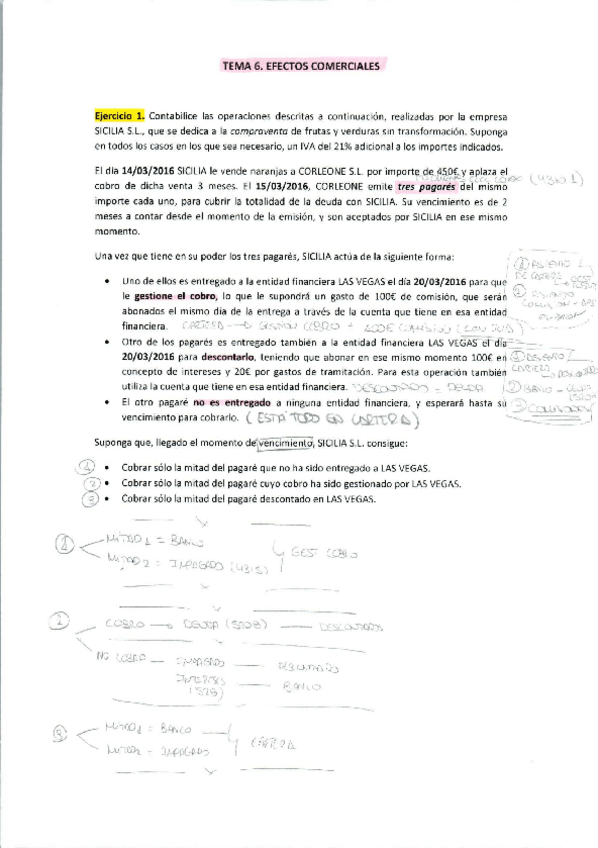 TEMA 6. EFECTOS COMERCIALES
Ejercicio 1. Contabilice las operaciones descritas a continuación, realizadas por la empresa
SICILIA S.L., que se dedica a la compraventa de frutas y verduras sin transformación. Suponga
en todos los casos en los que sea necesario, un IVA del 21% adicional a los importes indicados.
El día 14/03/2016 SICILIA le vende naranjas a CORLEONE S.L. por importe de 450€ y aplaza el
(4310)
cobro de dicha venta 3 meses. El 15/03/2016, CORLEONE emite tres pagarés del mismo
importe cada uno, para cubrir la totalidad de la deuda con SICILIA. Su vencimiento es de 2
meses a contar desde el momento de la emisión, y son aceptados por SICILIA en ese mismo
momento.
Una vez que tiene en su poder los tres pagarés, SICILIA actúa de la siguiente forma:
• Uno de ellos es entregado a la entidad financiera LAS VEGAS el día 20/03/2016 para que
le gestione el cobro, lo que le supondrá un gasto de 100€ de comisión, que serán
abonados el mismo día de la entrega a través de la cuenta que tiene en esa entidad
financiera. CARTERA → GESTIÓN COBRO + 100€ (CON IVA)
• Otro de los pagarés es entregado también a la entidad financiera LAS VEGAS el día
20/03/2016 para descontarlo, teniendo que abonar en ese mismo momento 100€ en
concepto de intereses y 20€ por gastos de tramitación. Para esta operación también
utiliza la cuenta que tiene en esa entidad financiera. DESCONTADO - DEUDA
• El otro pagaré no es entregado a ninguna entidad financiera, y esperará hasta su
vencimiento para cobrarlo. (ESTÁ TODO EN CARTERA)
Suponga que, llegado el momento de vencimiento, SICILIA S.L. consigue:
① • Cobrar sólo la mitad del pagaré que no ha sido entregado a LAS VEGAS.
② • Cobrar sólo la mitad del pagaré cuyo cobro ha sido gestionado por LAS VEGAS.
③ • Cobrar sólo la mitad del pagaré descontado en LAS VEGAS.
① MITAD 1 = BANCO
MITAD 2 = IMPAGADO (4315)
GEST COBRO
② COBRO → DEUDA (5208) — DESCONTADOS
NO COBRO — IMPAGADO — DESCONTADO
INTERESES — BANCO
③ MITAD 1 = BANCO
MITAD 2 = IMPAGADO
CARTERA